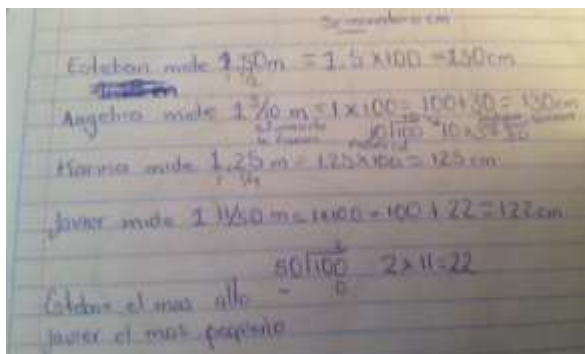 Esteban mide 1.50m = 1.5 x100 = 150cm
Angelica mide 1 3/10 m = 1 x 100 = 100+30 = 130cm
10 100
Karina mide 1.25 m = 1.25x100 = 125 cm
Javier mide 1 11/50 m = 1x100 = 100 + 22 = 122cm
50 100 2 x 11 = 22
0
Esteban el mas alto
Javier el mas pequeño